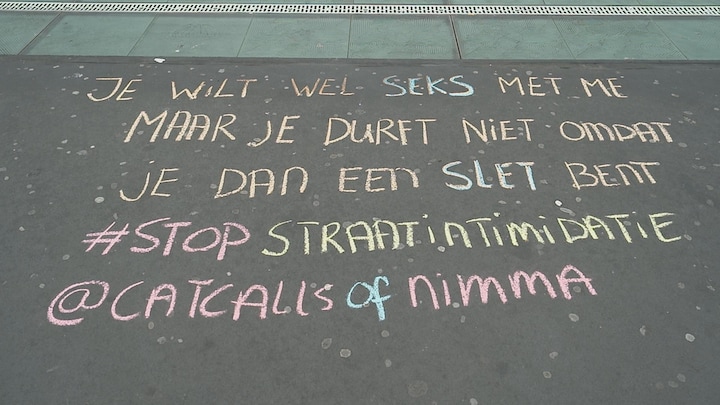 JE WILT WEL SEKS MET ME
MAAR JE DURFT NIET OMDAT
JE DAN EEN SLET BENT
#STOP STRAATINTIMIDATIE
@CATCALLS OF NIMMA